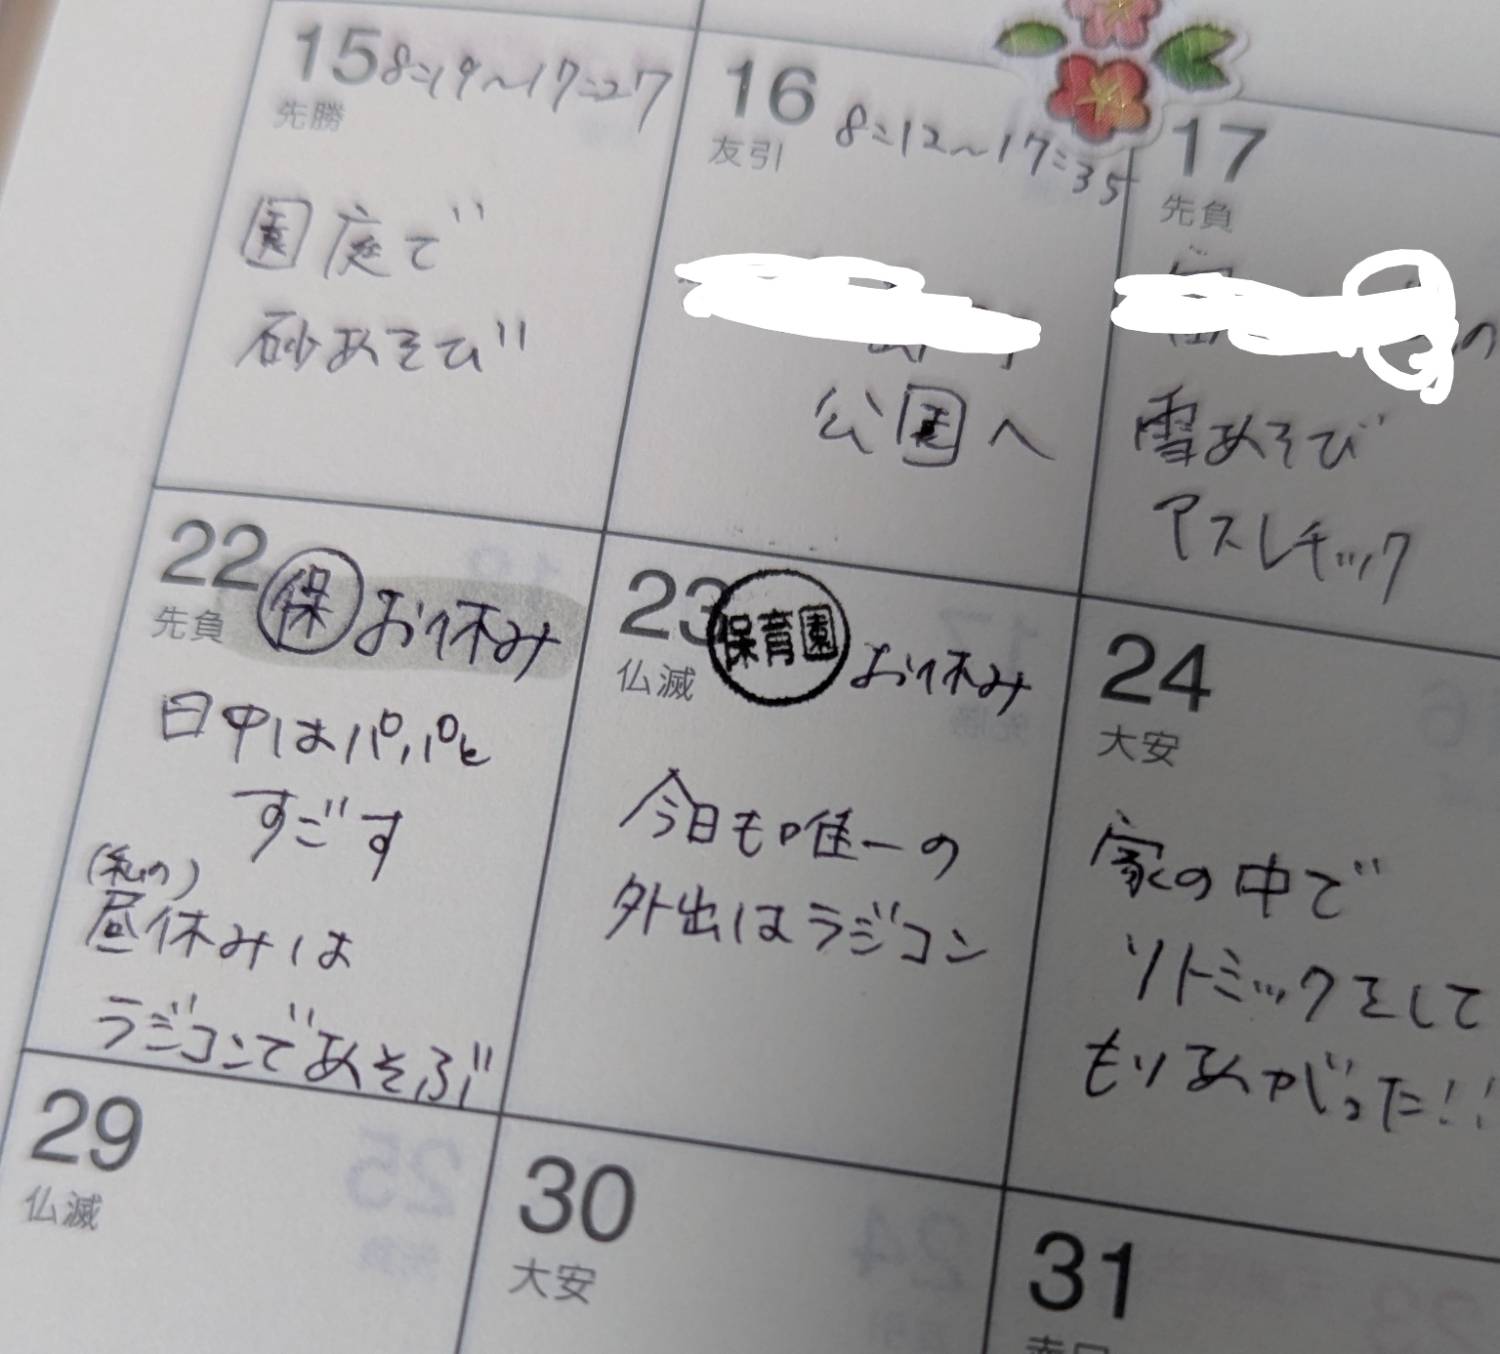 15 8:19～17:27
先勝
園庭で
砂あそび
16 8:12～17:35
友引
公園へ
17
先負
の
雪あそび
アスレチック
22 保 お休み
先負
日中はパパと
すごす
(私の)
昼休みは
ラジコンであそぶ
23 保育園 お休み
仏滅
今日も唯一の
外出はラジコン
24
大安
家の中で
リトミックをして
もりあがった!!
29
仏滅
30
大安
31